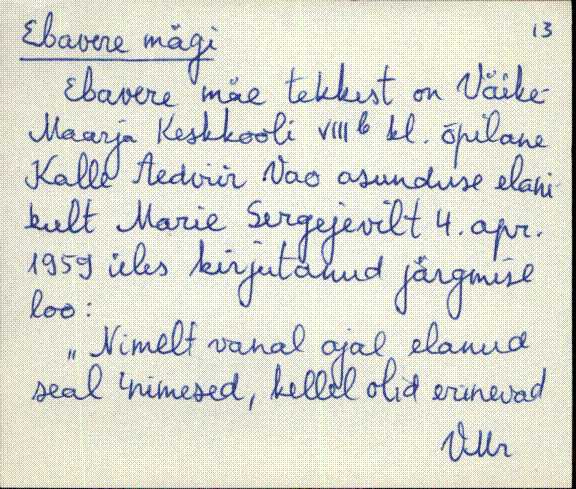 13
Ebavere mägi
Ebavere mäe tekkest on Väike-
Maarja Keskkooli VIII b kl. õpilane
Kalle Aedviir Vao asunduse elani-
kult Marie Sergejevilt 4. apr.
1959 üles kirjutanud järgmise
loo:
„Nimelt vanal ajal elanud
seal inimesed, kellel olid erinevad